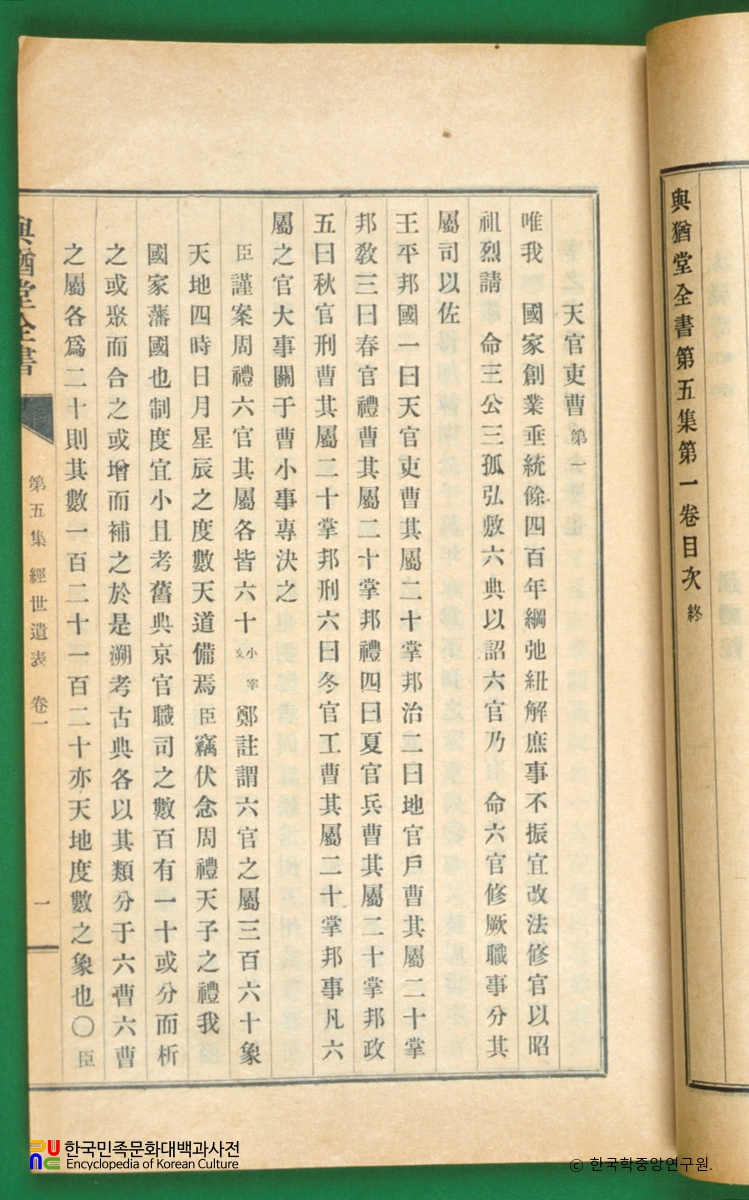 與猶堂全書第五集第一卷目次 終
天官吏曹 第一
唯我 國家創業垂統餘四百年綱弛紐解庶事不振宜改法修官以昭
祖烈請 命三公三孤弘敷六典以詔六官乃 命六官修厥職事分其
屬司以佐
王平邦國一曰天官吏曹其屬二十掌邦治二曰地官戶曹其屬二十掌
邦敎三曰春官禮曹其屬二十掌邦禮四曰夏官兵曹其屬二十掌邦政
五曰秋官刑曹其屬二十掌邦刑六曰冬官工曹其屬二十掌邦事凡六
屬之官大事關于曹小事專決之
臣謹案周禮六官其屬各皆六十 小宰文 鄭註謂六官之屬三百六十象
天地四時日月星辰之度數天道備焉臣竊伏念周禮天子之禮我
國家藩國也制度宜小且考舊典京官職司之數百有一十或分而析
之或聚而合之或增而補之於是溯考古典各以其類分于六曹六曹
之屬各爲二十則其數一百二十一百二十亦天地度數之象也〇臣
與猶堂全書
第五集 經世遺表 卷一
一
한국민족문화대백과사전
Encyclopedia of Korean Culture
© 한국학중앙연구원.